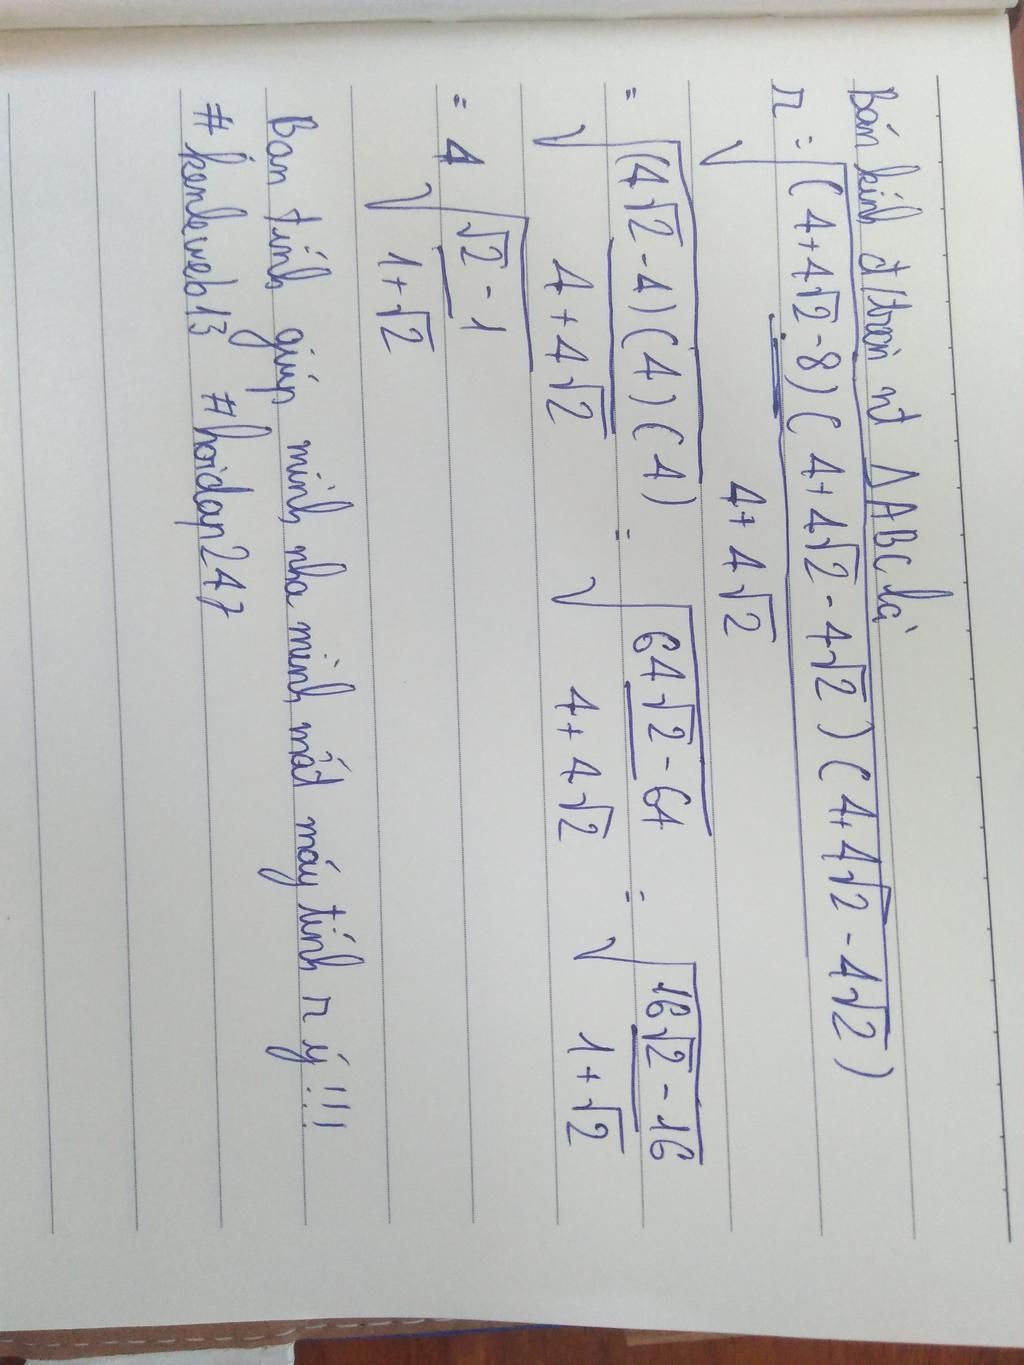 Bán kính đ/tròn nt ΔABC là
r = √((4+4√2-8)(4+4√2-4√2)(4+4√2-4√2)/(4+4√2))
= √((4√2-4)(4)(4)/(4+4√2)) = √((64√2-64)/(4+4√2)) = √((16√2-16)/(1+√2))
= 4√((√2-1)/(1+√2))
Bạn tính giúp mình nha mình mất máy tính r ý!!!
#kenleweb13 #hoidap247